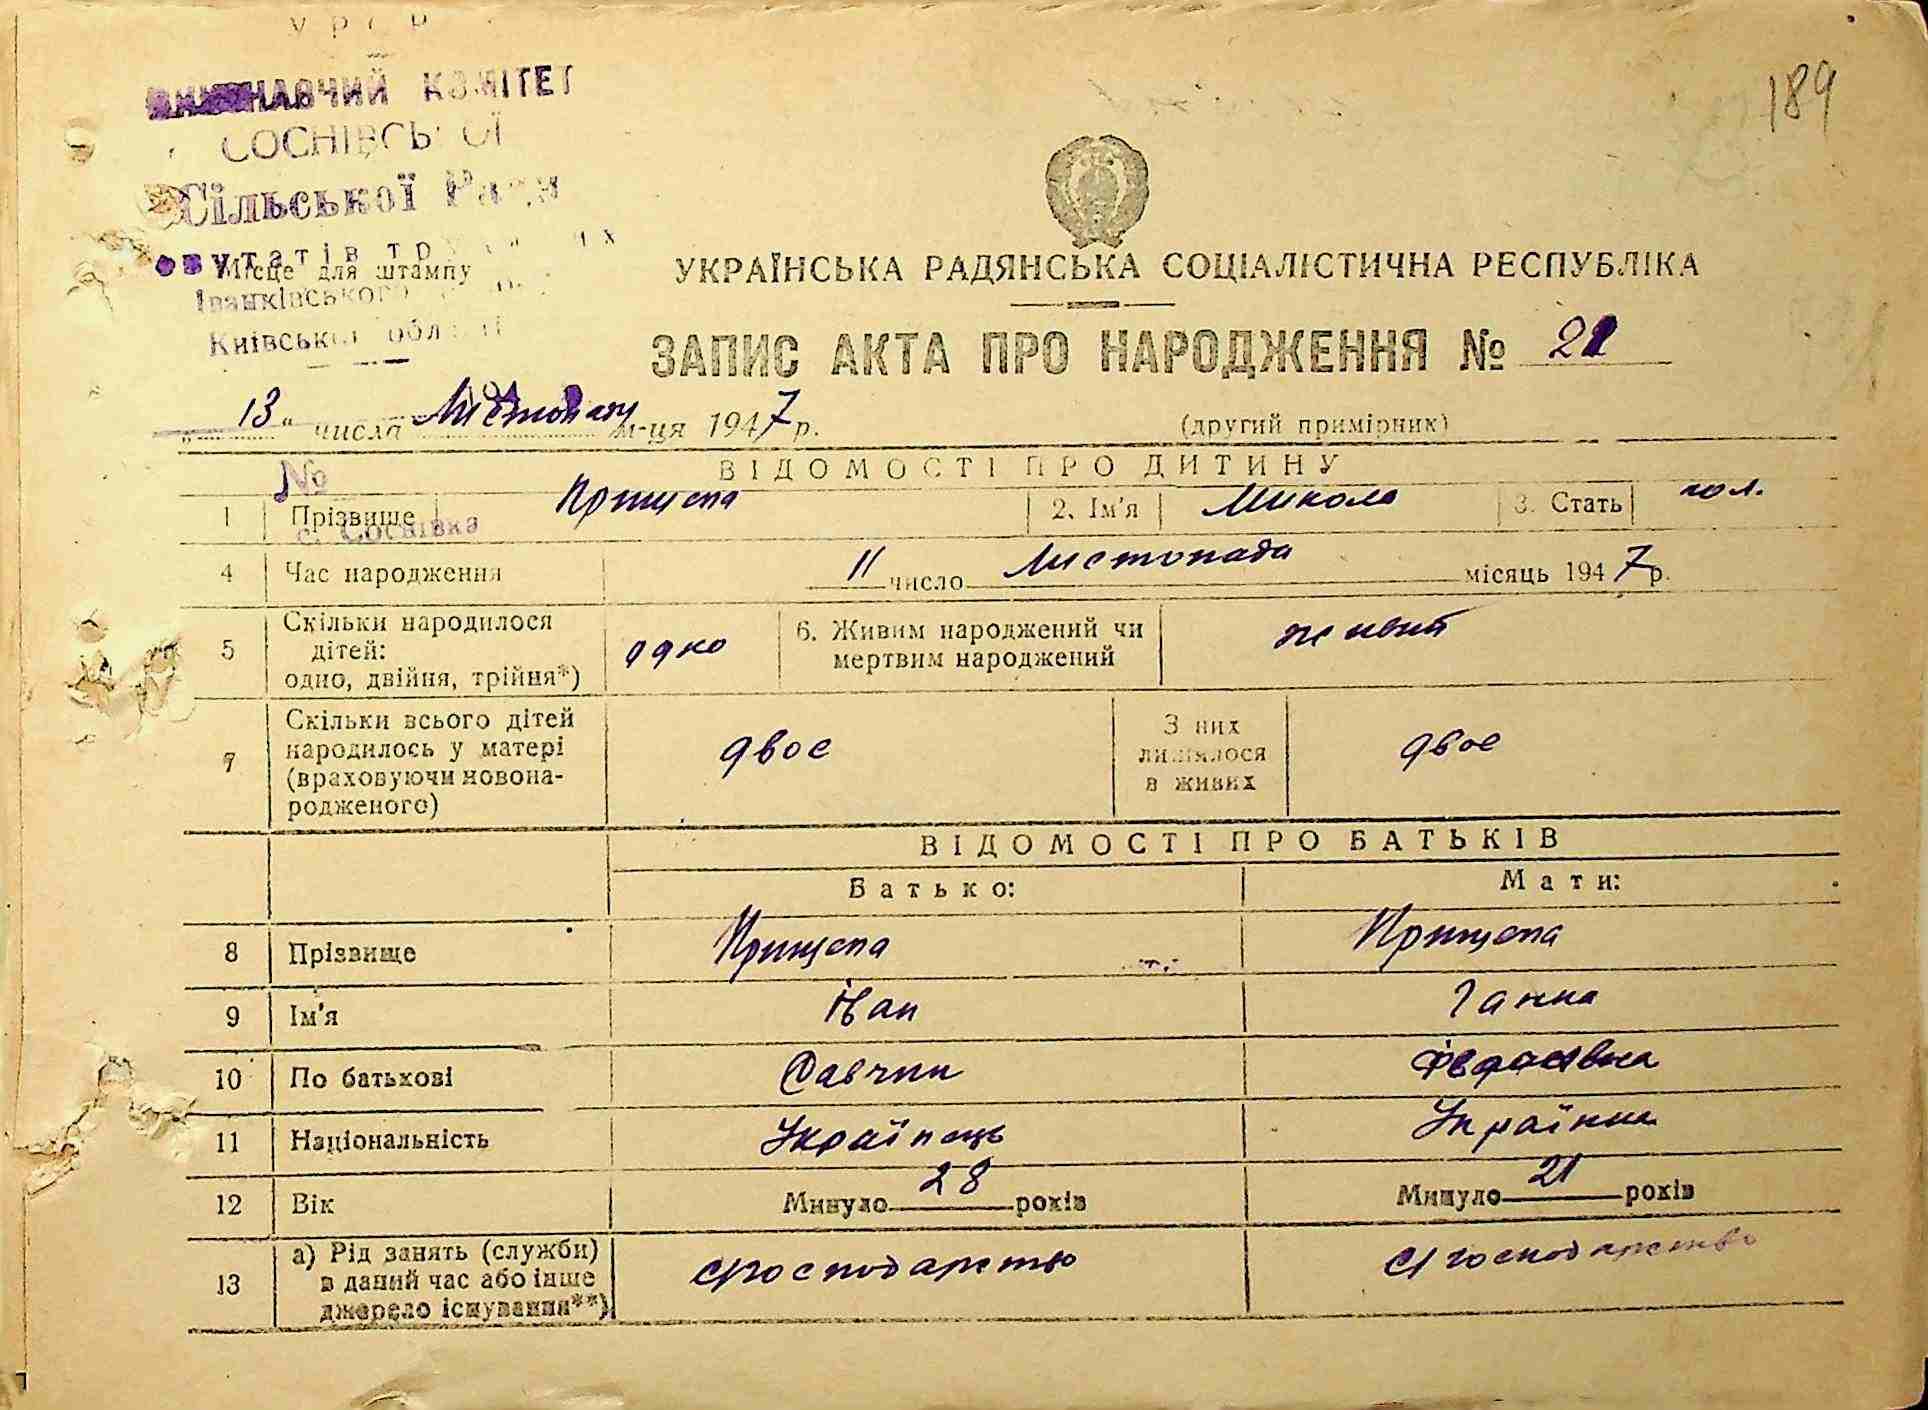 УРСР
ВИКОНАВЧИЙ КОМІТЕТ
СОСНІВСЬКОЇ
Сільської Ради
депутатів трудящих
Місце для штампу
Іванківського
Київської області
189
УКРАЇНСЬКА РАДЯНСЬКА СОЦІАЛІСТИЧНА РЕСПУБЛІКА
ЗАПИС АКТА ПРО НАРОДЖЕННЯ №
„13“ числа Листопада м-ця 1947 р.
(другий примірник)
№
с. Соснівка
ВІДОМОСТІ ПРО ДИТИНУ
1 Прізвище Прищепа 2. Ім'я Микола 3. Стать чол.
4 Час народження 11 число Листопада місяць 1947 р.
5 Скільки народилося дітей: одно, двійня, трійня*) одно 6. Живим народжений чи мертвим народжений живий
7 Скільки всього дітей народилось у матері (враховуючи новонародженого) двоє З них лишилося в живих двоє
ВІДОМОСТІ ПРО БАТЬКІВ
Батько: Мати:
8 Прізвище Прищепа Прищепа
9 Ім'я Іван Ганна
10 По батькові Савчин
11 Національність Українець Українка
12 Вік Минуло 28 років Минуло 21 років
13 а) Рід занять (служби) в даний час або інше джерело існування**)